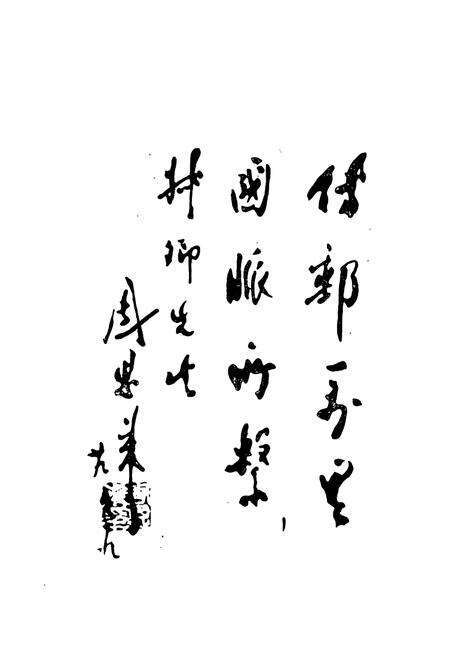 傳郵万里
國脈所繫
卿先生
周恩來